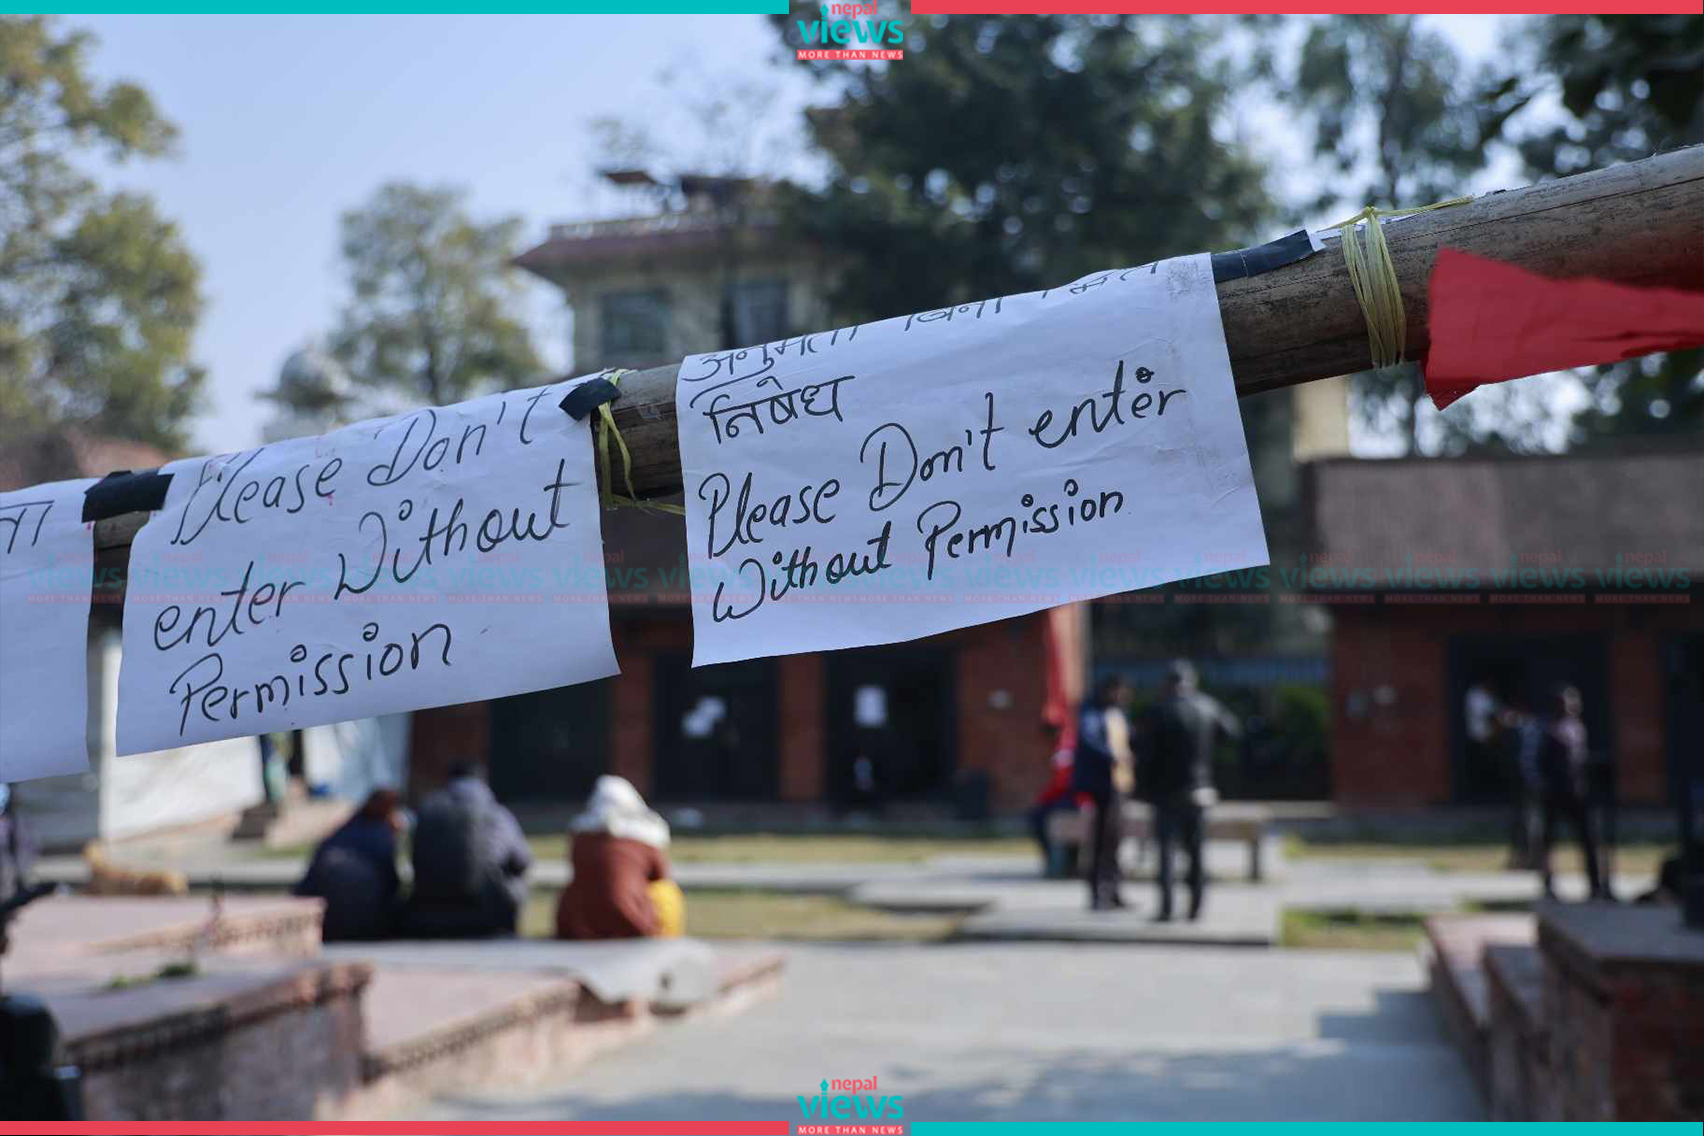 nepal
views
MORE THAN NEWS
ता
Please Don't
enter Without
Permission
अनुमती बिना
निषेध
Please Don't enter
Without Permission
nepal
views
MORE THAN NEWS